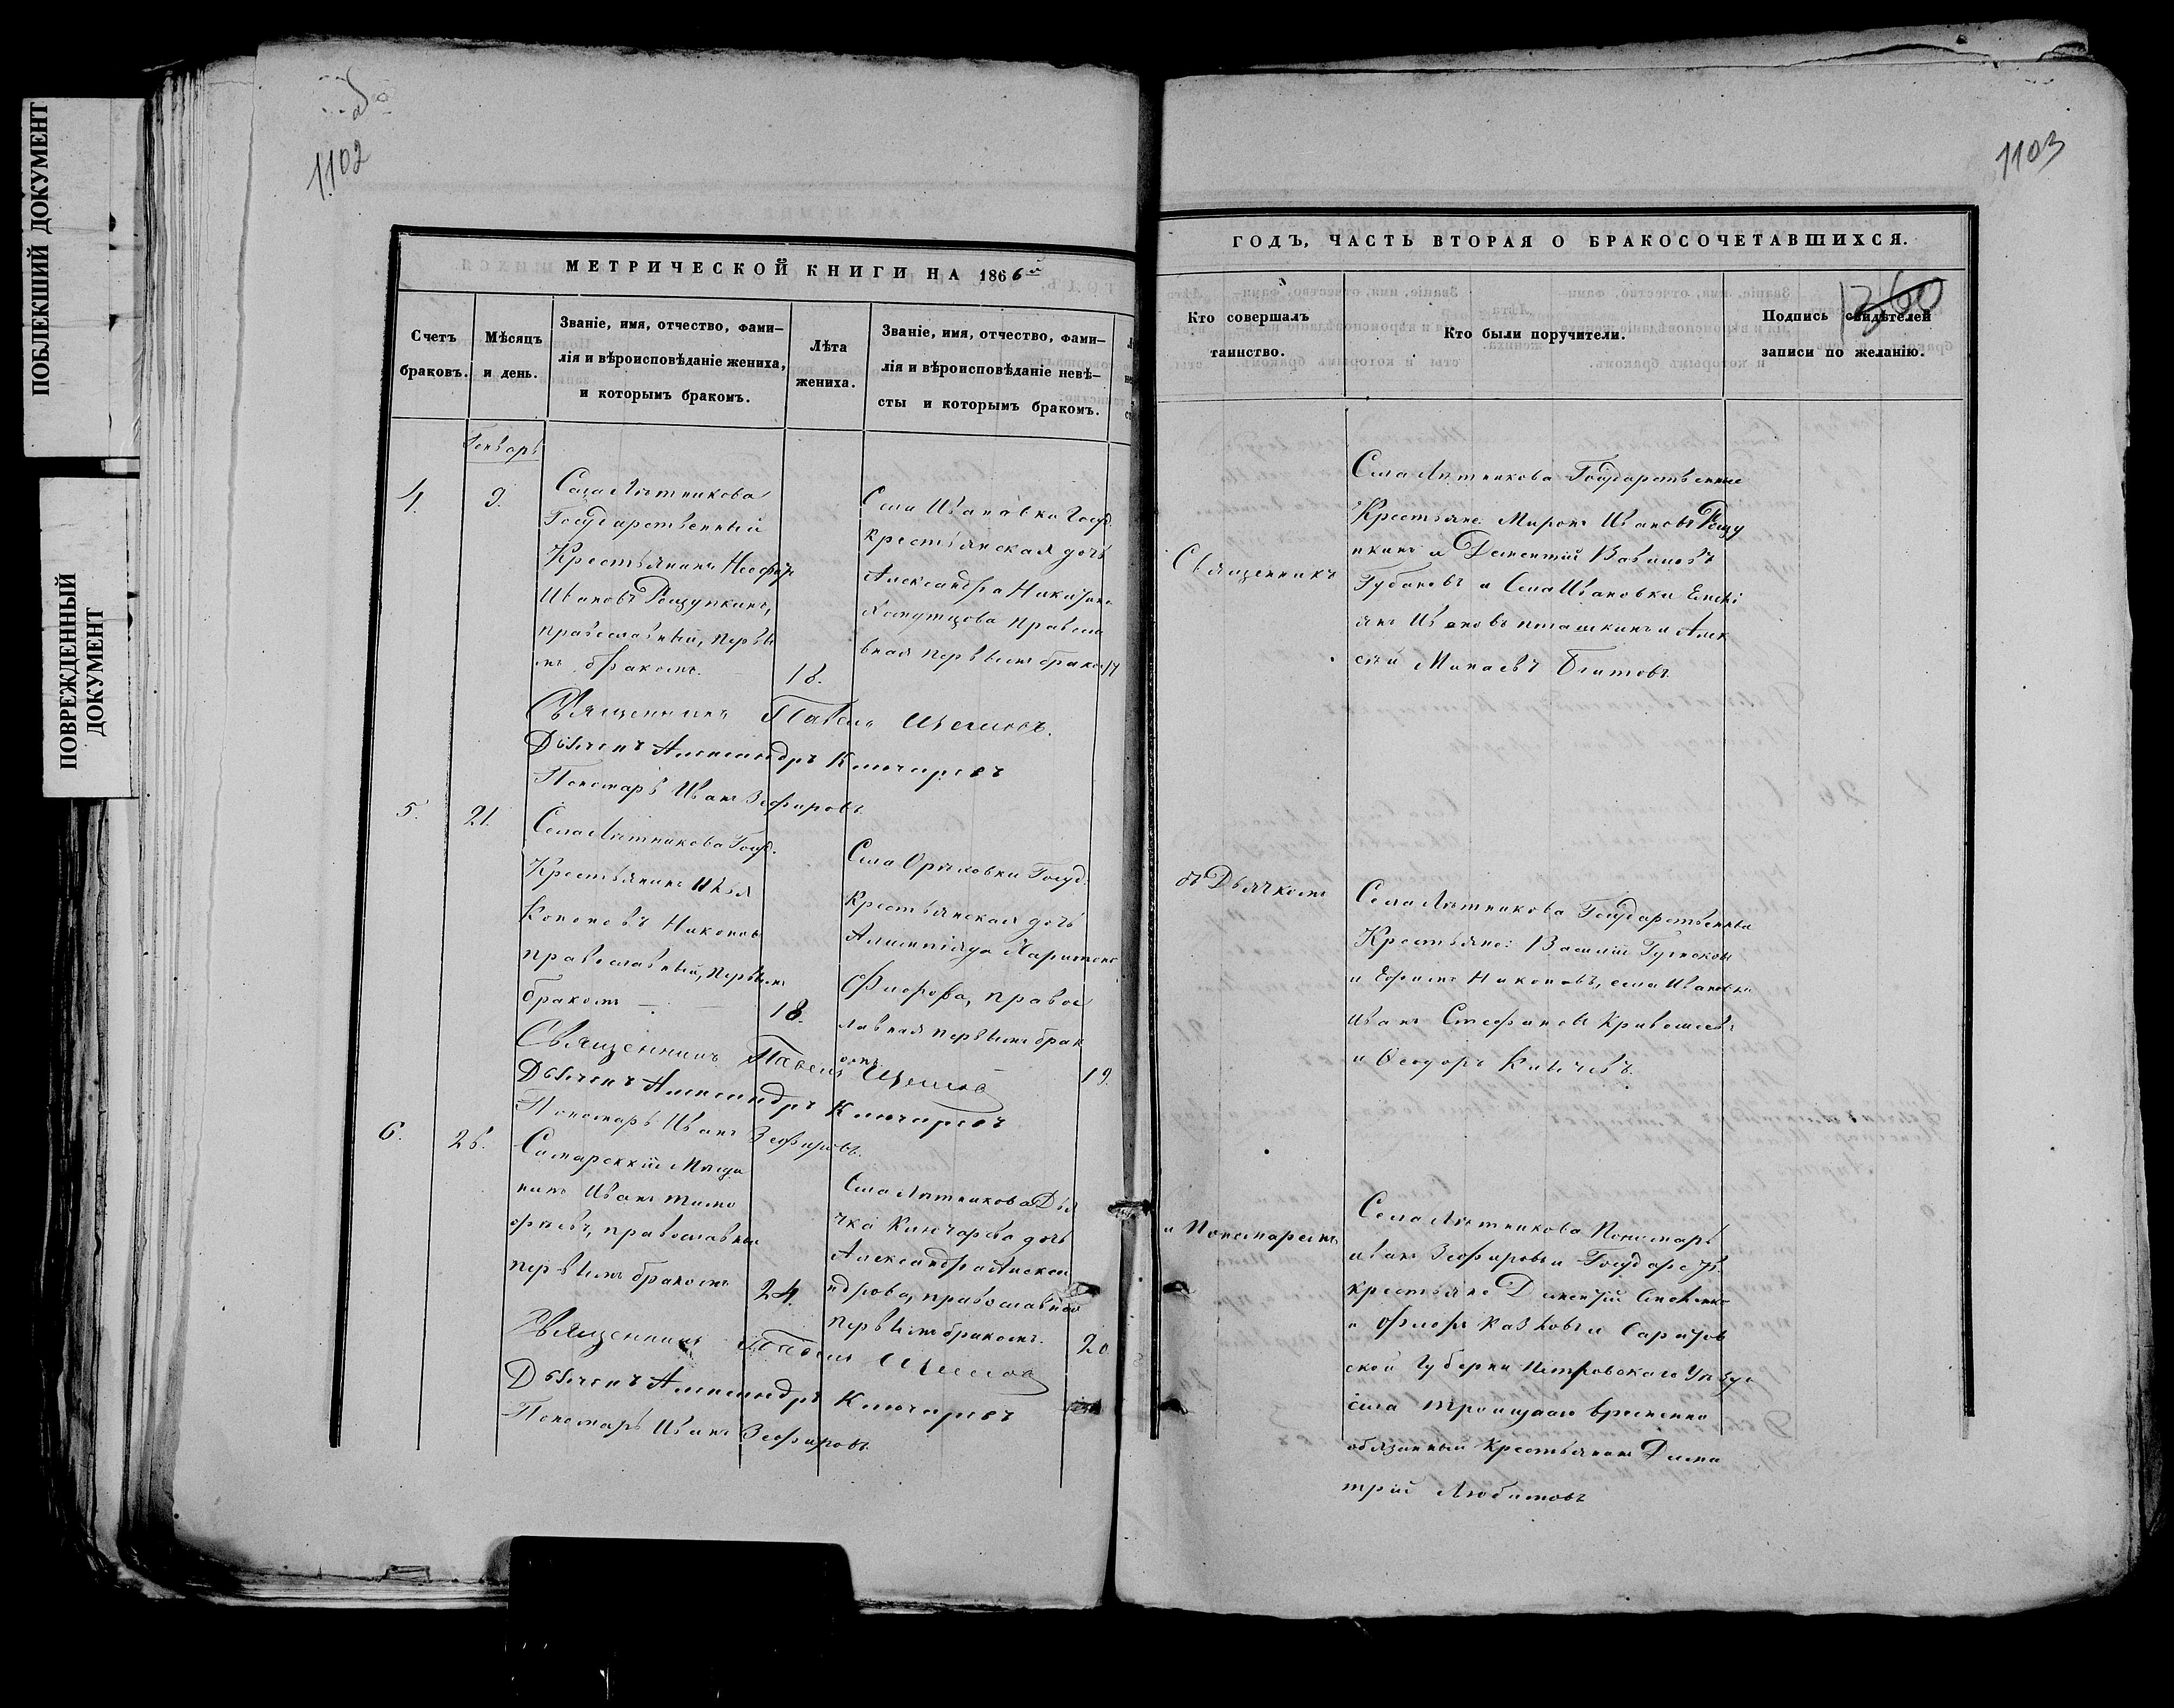 ПОБЛЕКШИЙ ДОКУМЕНТ
ПОВРЕЖДЕННЫЙ
ДОКУМЕНТ
1102
1103
МЕТРИЧЕСКОЙ КНИГИ НА 1866й
ГОДЪ, ЧАСТЬ ВТОРАЯ О БРАКОСОЧЕТАВШИХСЯ.
1360
Счетъ
браковъ.
Мѣсяцъ
и день.
Званіе, имя, отчество, фами-
лія и вѣроисповѣданіе жениха,
и которымъ бракомъ.
Лѣта
жениха.
Званіе, имя, отчество, фами-
лія и вѣроисповѣданіе невѣ-
сты и которымъ бракомъ.
Кто совершалъ
таинство.
Кто были поручители.
Подпись свидѣтелей
записи по желанію.
Генварь
4.
9.
Села Лѣтникова
Государственный
Крестьянинъ
Ивановъ Рещупкинъ,
православный, первы
мъ бракомъ.
18.
Села Ивановки Госуд.
крестьянская дочь
Александра
православ
вная первымъ бракомъ
Священникъ
Села Лѣтникова Государственные
Крестьяне Миронъ Ивановъ Рещу
пкинъ и Дементій
Губановъ и Села Ивановки
Ивановъ пташкинъ и Алек
сѣй Минаевъ
Священникъ Павелъ
Дьячекъ Александръ Ключаревъ
Пономарь Иванъ Зефировъ
5.
21.
Села Лѣтникова Госуд.
Крестьянинъ Илья
Кононовъ Никоновъ
православный, первымъ
бракомъ
18.
Села Орѣховки Госуд.
Крестьянская дочь
Алимпіяда Харитоно
Флорова, правос
лавная первымъ брак
омъ
19.
съ Дьячкомъ
Села Лѣтникова Государственны
Крестьяне: Василій
и Ефимъ Никоновъ, села Ивановки
Иванъ Стефановъ Кривошеевъ
и Ѳеодоръ
Священникъ Павелъ
Дьячекъ Александръ Ключаревъ
Пономарь Иванъ Зефировъ.
6.
26.
Самарскій Мѣща
нинъ Иванъ Тимо
фѣевъ, православный
первымъ бракомъ
24.
Села Лѣтникова Дья
чка Ключарева дочь
Александра Алексан
ндрова, православная
первымъ бракомъ.
20
и Пономаремъ
Села Лѣтникова Пономарь
иванъ Зефировъ и Государств.
крестьяне Дементій
и Флоръ Казковъ и Саратов
ской Губерни Петровскаго Уѣзда
села Троицкаго временно
обязанный Крестьянинъ Дими
трій Любимовъ
Священникъ Павелъ
Дьячекъ Александръ Ключаревъ
Пономарь Иванъ Зефировъ